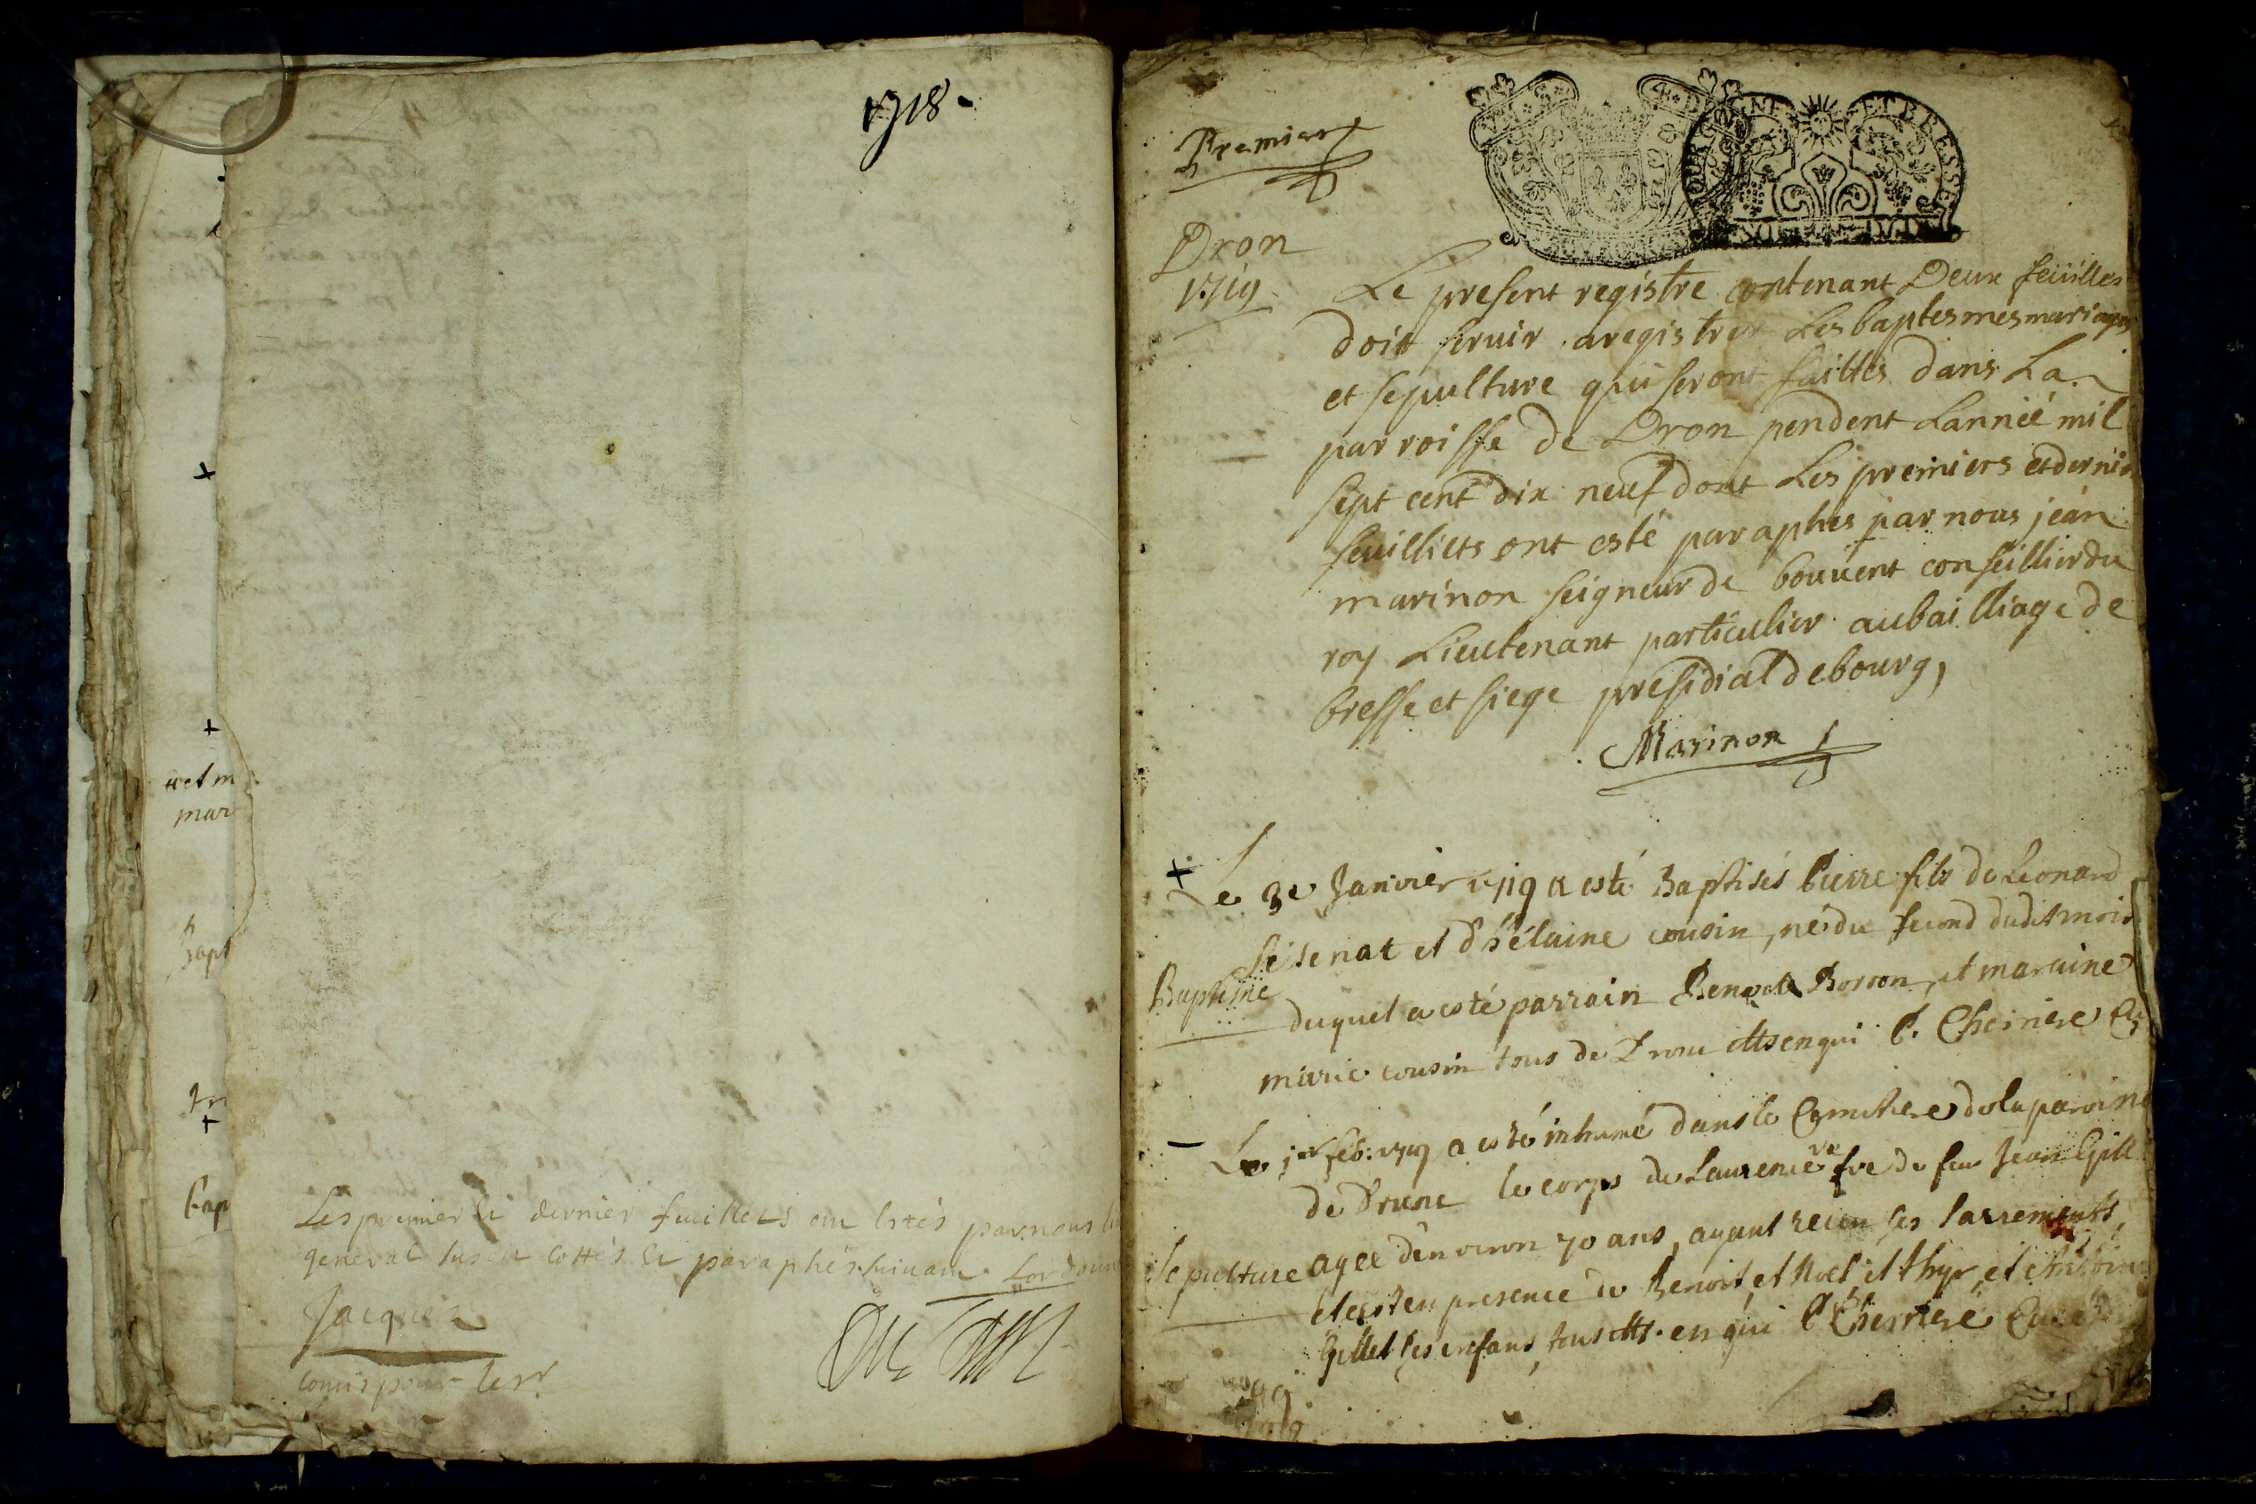 1718
Les premier et dernier feuillets par nous
general cottés et paraphés suivant
Jacquet
Premier
Dron
1719
Le present registre contenant Deux feüilles
doit servir a registrer Les baptesmes mariages
et sepulture qui seront faittes dans La
parroisse de Dron pendent Lanneé mil
sept cent dix neuf dont Les premiers et dernier
feuilliets ont esté paraphes par nous jean
marinon seigneur de bouuent conseillier du
roy Lieutenant particulier au bailliage de
bresse et siege presidial de bourg,
Marinon
BOURGOGNE ET BRESSE
Le 3e Janvier 1719 a esté Baptisés Pierre fils de Leonard
et d'hélaine cousin, né du second dudit mois
Baptême
duquel a esté parrain Benoit Borron, et maraine
marie cousin tous de Dron en qui
Le 1er feb: 1719 a esté inhumé dans le Cymetiere de la paroisse
de Drune le corps de Laurence vve de feu Jean Gillet
Sepulture
agée d'environ 70 ans, ayant receu ses Sacrements,
et est en presence de Benoit, et
Gillet ses enfans, tous en qui Cherriere Curé
Bapt
mar
Bap